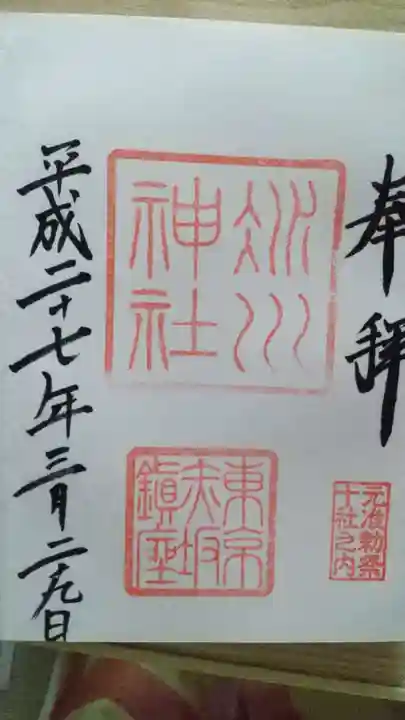 奉拝
元准勅祭
十社之内
氷川
神社
東京
赤坂
鎮座
平成二十七年三月二十九日